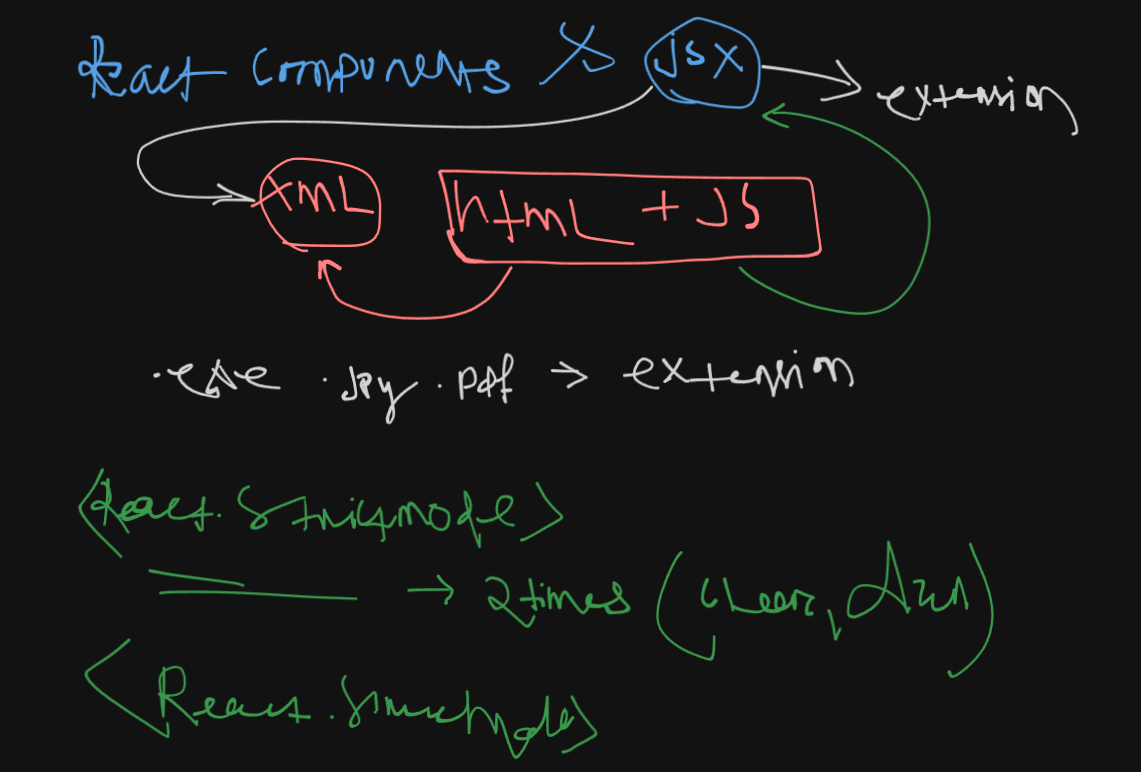 React Components jsx → extension
XML html + JS
.exe .jpg .pdf → extension
<React.Strictmode>
→ 2 times
<React.StrictMode>